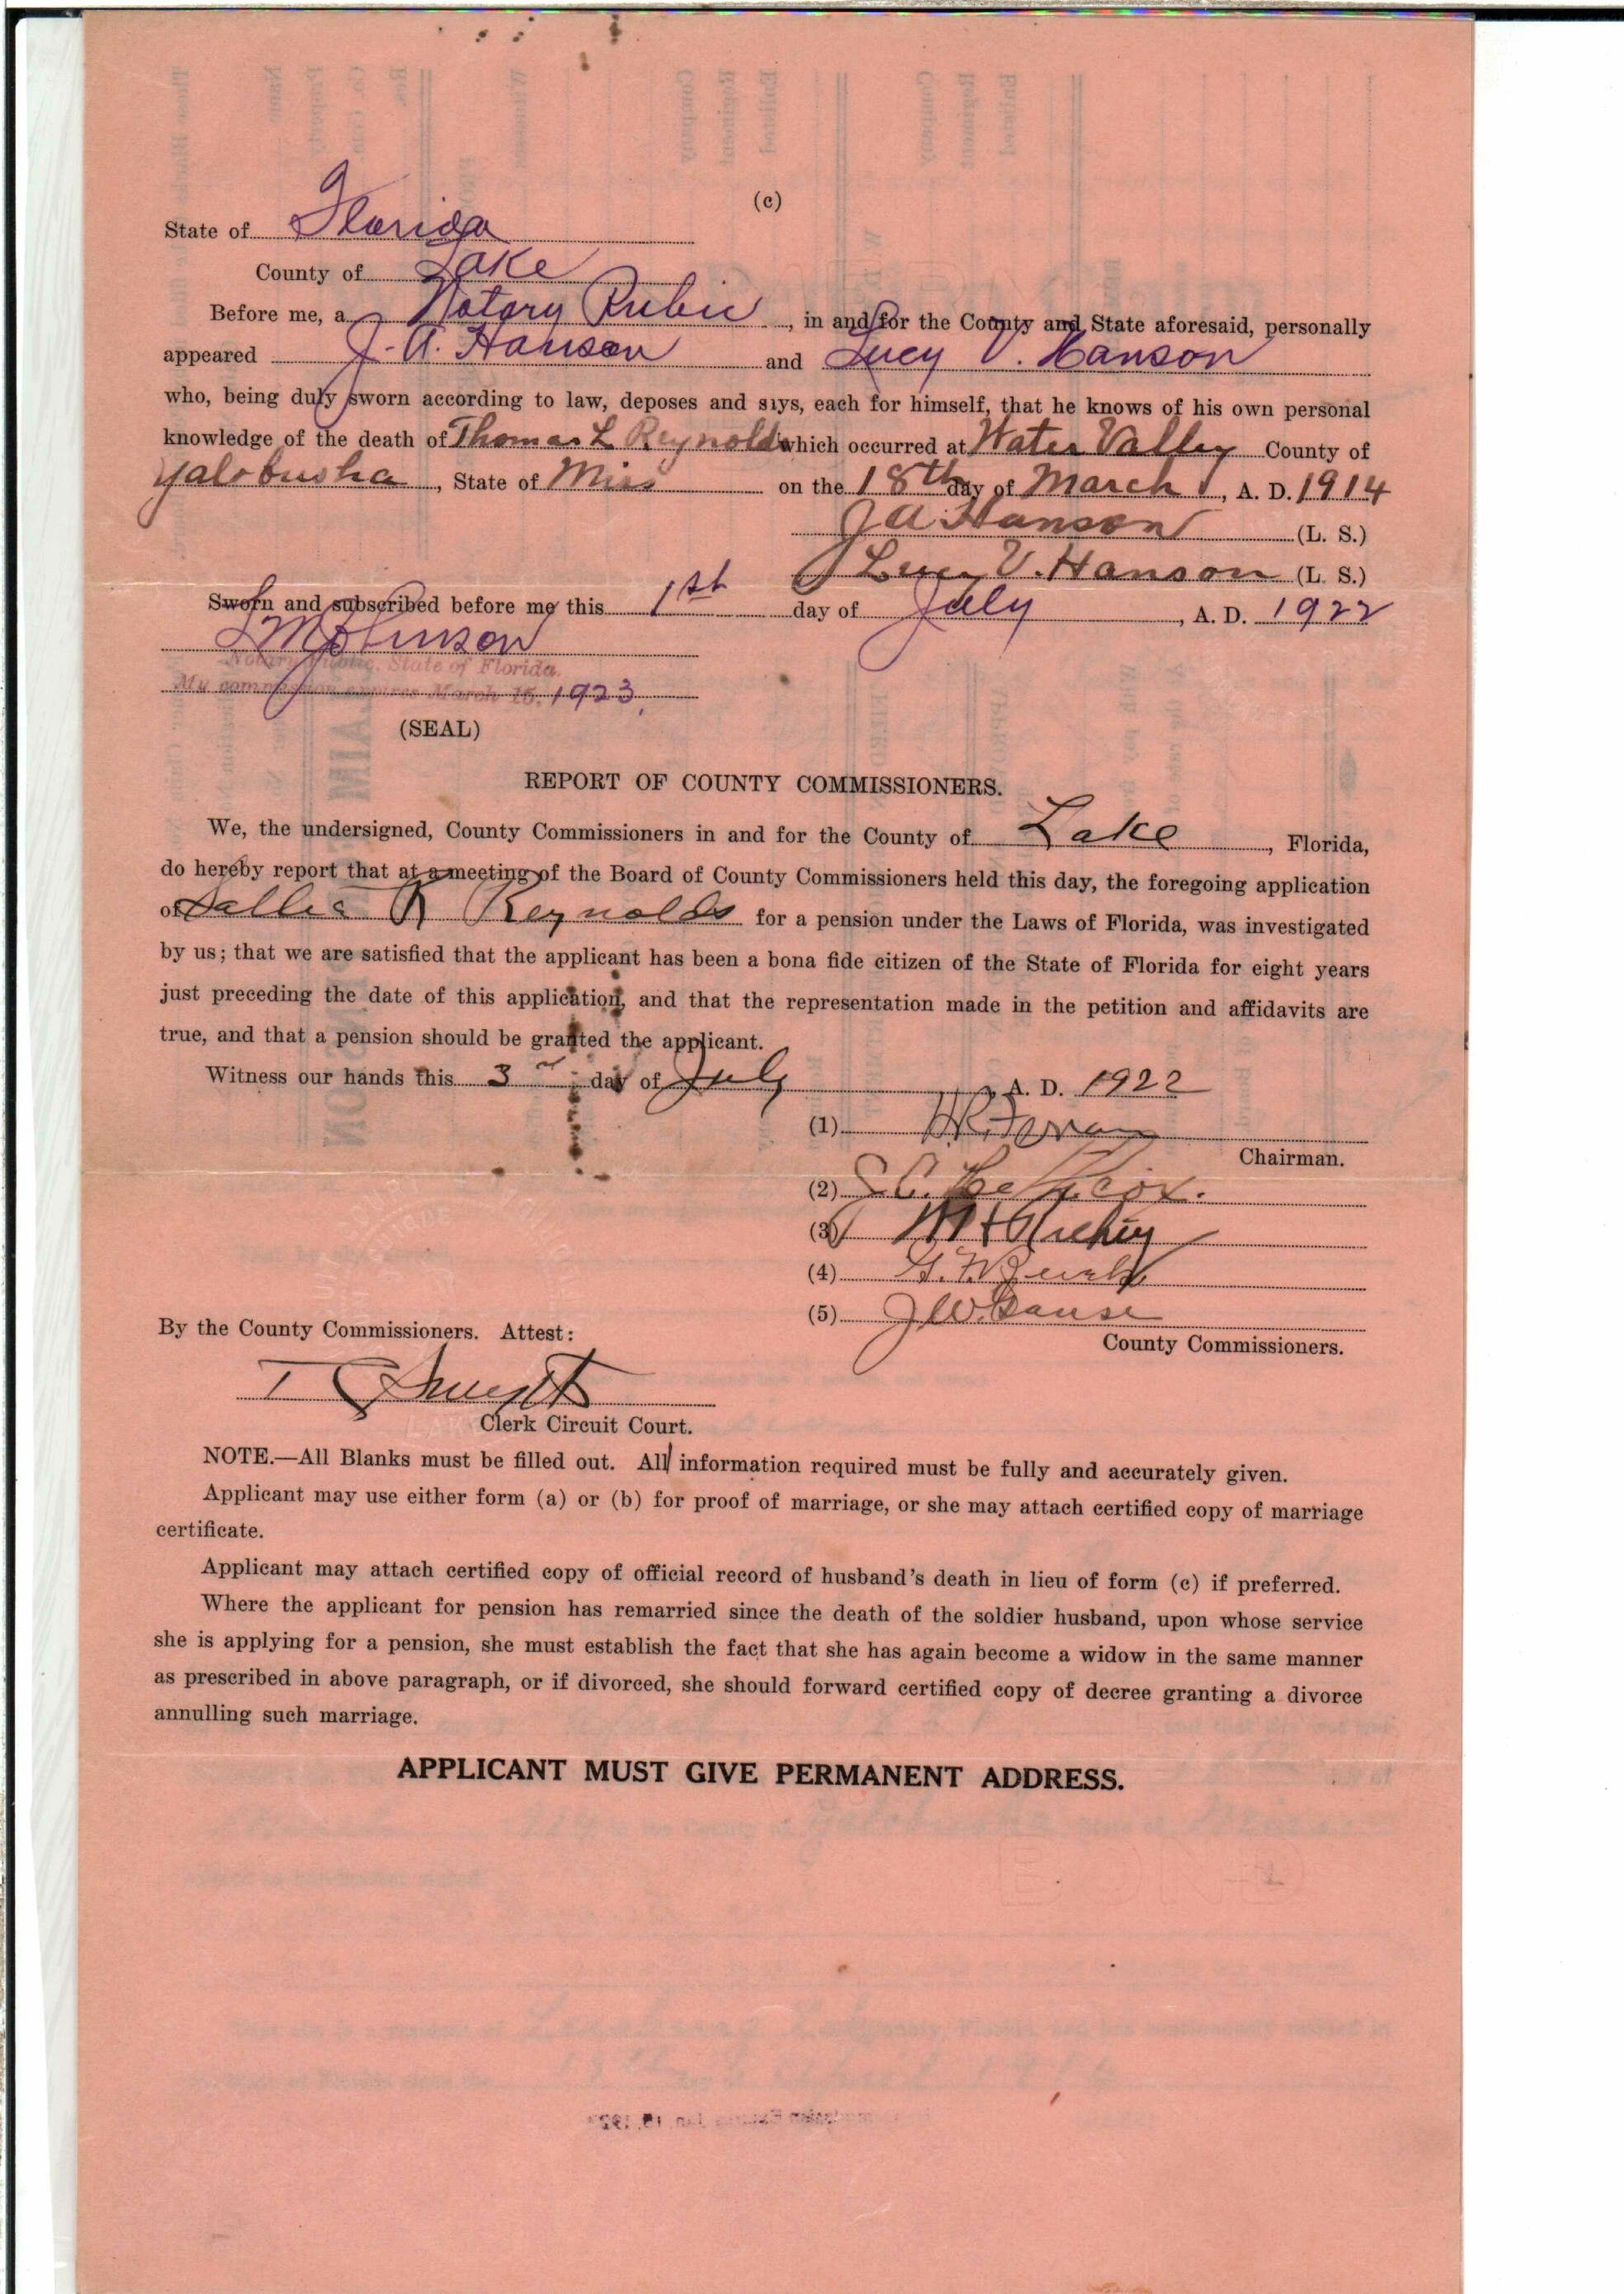 (c)
State of Florida
County of Lake
Before me, a Notary Public, in and for the County and State aforesaid, personally
appeared J. A. Hanson and Lucy V. Hanson
who, being duly sworn according to law, deposes and says, each for himself, that he knows of his own personal
knowledge of the death of Thomas L Reynolds which occurred at Water Valley County of
Yalobusha, State of Miss on the 18th day of March, A. D. 1914
J A Hanson (L. S.)
Lucy V. Hanson (L. S.)
Sworn and subscribed before me this 1st day of July, A. D. 1922
Notary Public, State of Florida.
My commission expires March 15, 1923.
(SEAL)
REPORT OF COUNTY COMMISSIONERS.
We, the undersigned, County Commissioners in and for the County of Lake, Florida,
do hereby report that at a meeting of the Board of County Commissioners held this day, the foregoing application
of Sallie R Reynolds for a pension under the Laws of Florida, was investigated
by us; that we are satisfied that the applicant has been a bona fide citizen of the State of Florida for eight years
just preceding the date of this application, and that the representation made in the petition and affidavits are
true, and that a pension should be granted the applicant.
Witness our hands this 3rd day of July, A. D. 1922
(1)
Chairman.
(2) S. C.
(3)
(4) G. W.
(5) J W. Gause
County Commissioners.
By the County Commissioners. Attest:
T C Smyth
Clerk Circuit Court.
NOTE.—All Blanks must be filled out. All information required must be fully and accurately given.
Applicant may use either form (a) or (b) for proof of marriage, or she may attach certified copy of marriage
certificate.
Applicant may attach certified copy of official record of husband's death in lieu of form (c) if preferred.
Where the applicant for pension has remarried since the death of the soldier husband, upon whose service
she is applying for a pension, she must establish the fact that she has again become a widow in the same manner
as prescribed in above paragraph, or if divorced, she should forward certified copy of decree granting a divorce
annulling such marriage.
APPLICANT MUST GIVE PERMANENT ADDRESS.